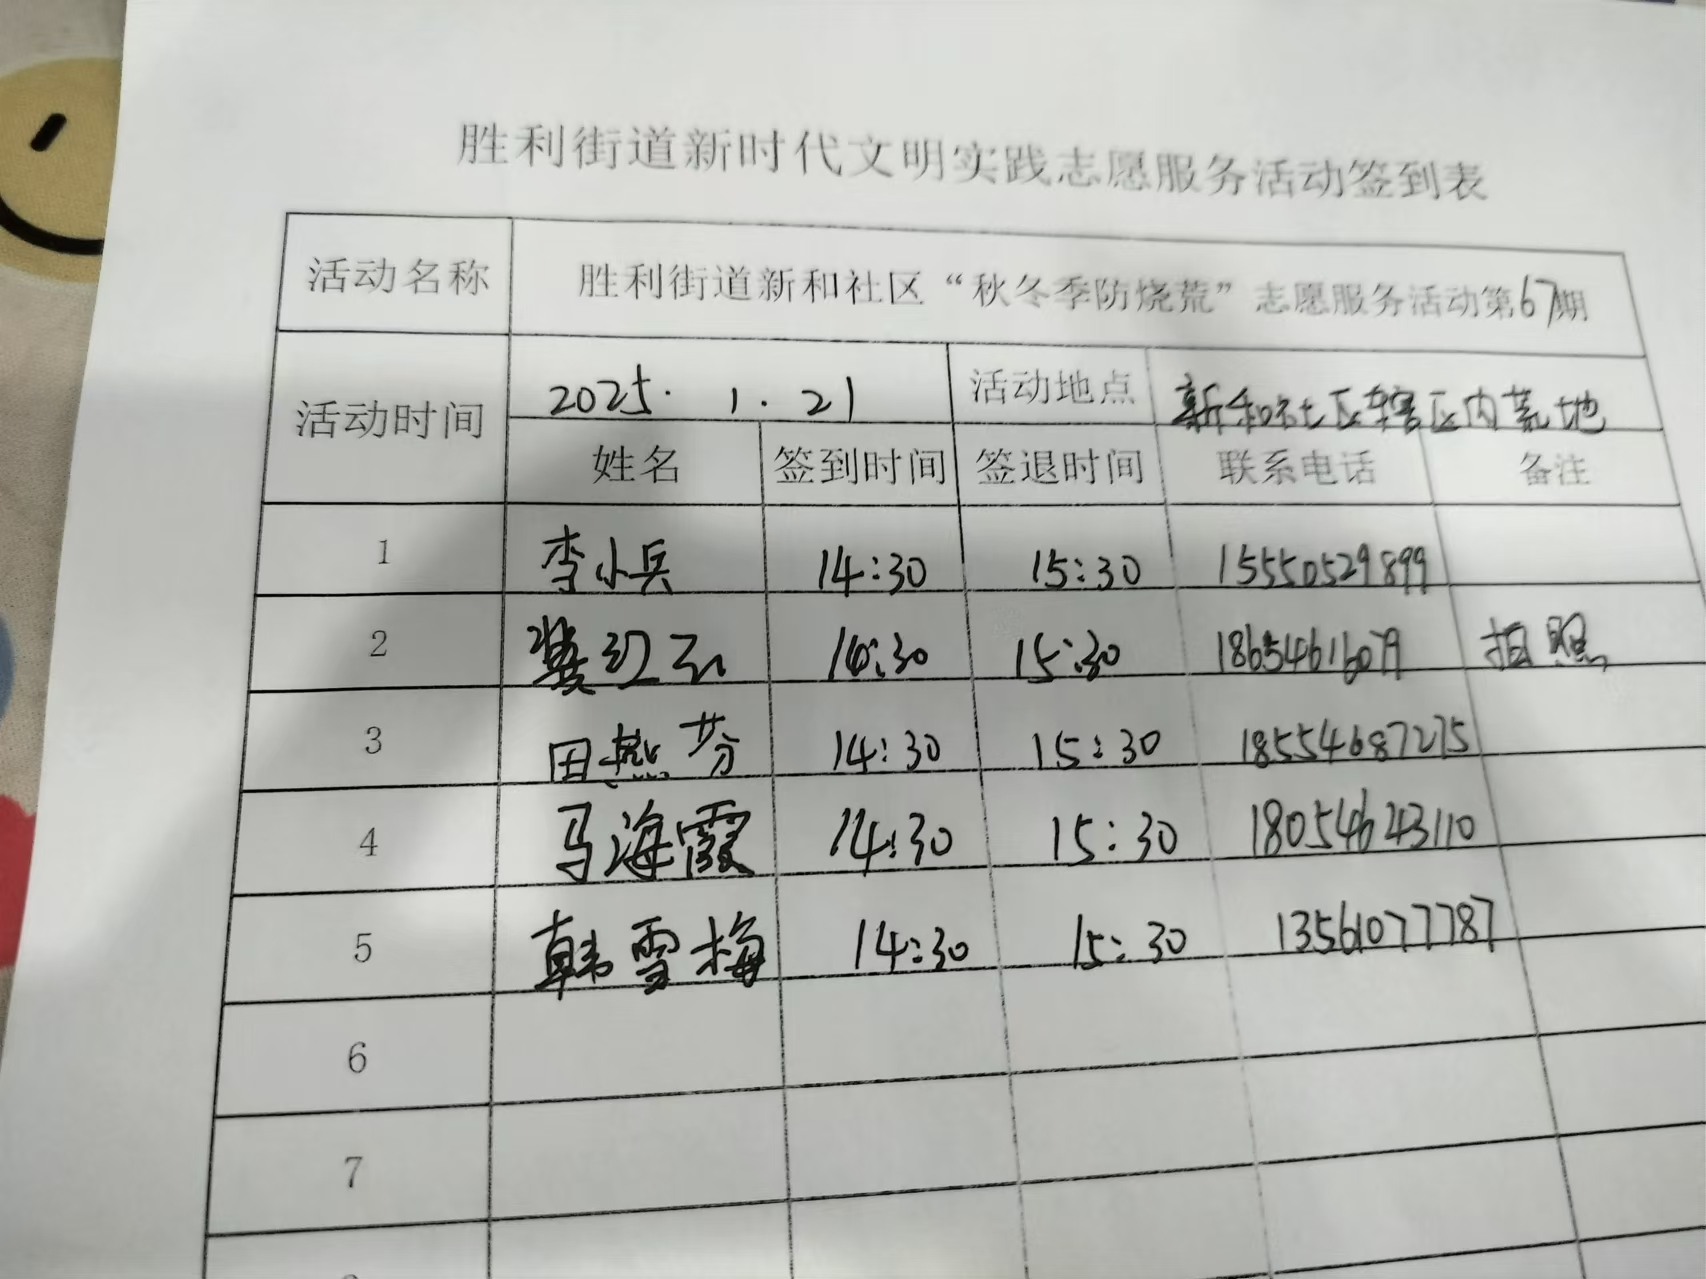 胜利街道新时代文明实践志愿服务活动签到表
活动名称 胜利街道新和社区“秋冬季防烧荒”志愿服务活动第67期
活动时间 2025.1.21 活动地点 新和社区辖区内荒地
姓名 签到时间 签退时间 联系电话 备注
1 李小兵 14:30 15:30 15550529899
2 14:30 15:30 拍照
3 田燕芬 14:30 15:30 18554687275
4 马海霞 14:30 15:30 18054643110
5 韩雪梅 14:30 15:30 13561077787
6
7